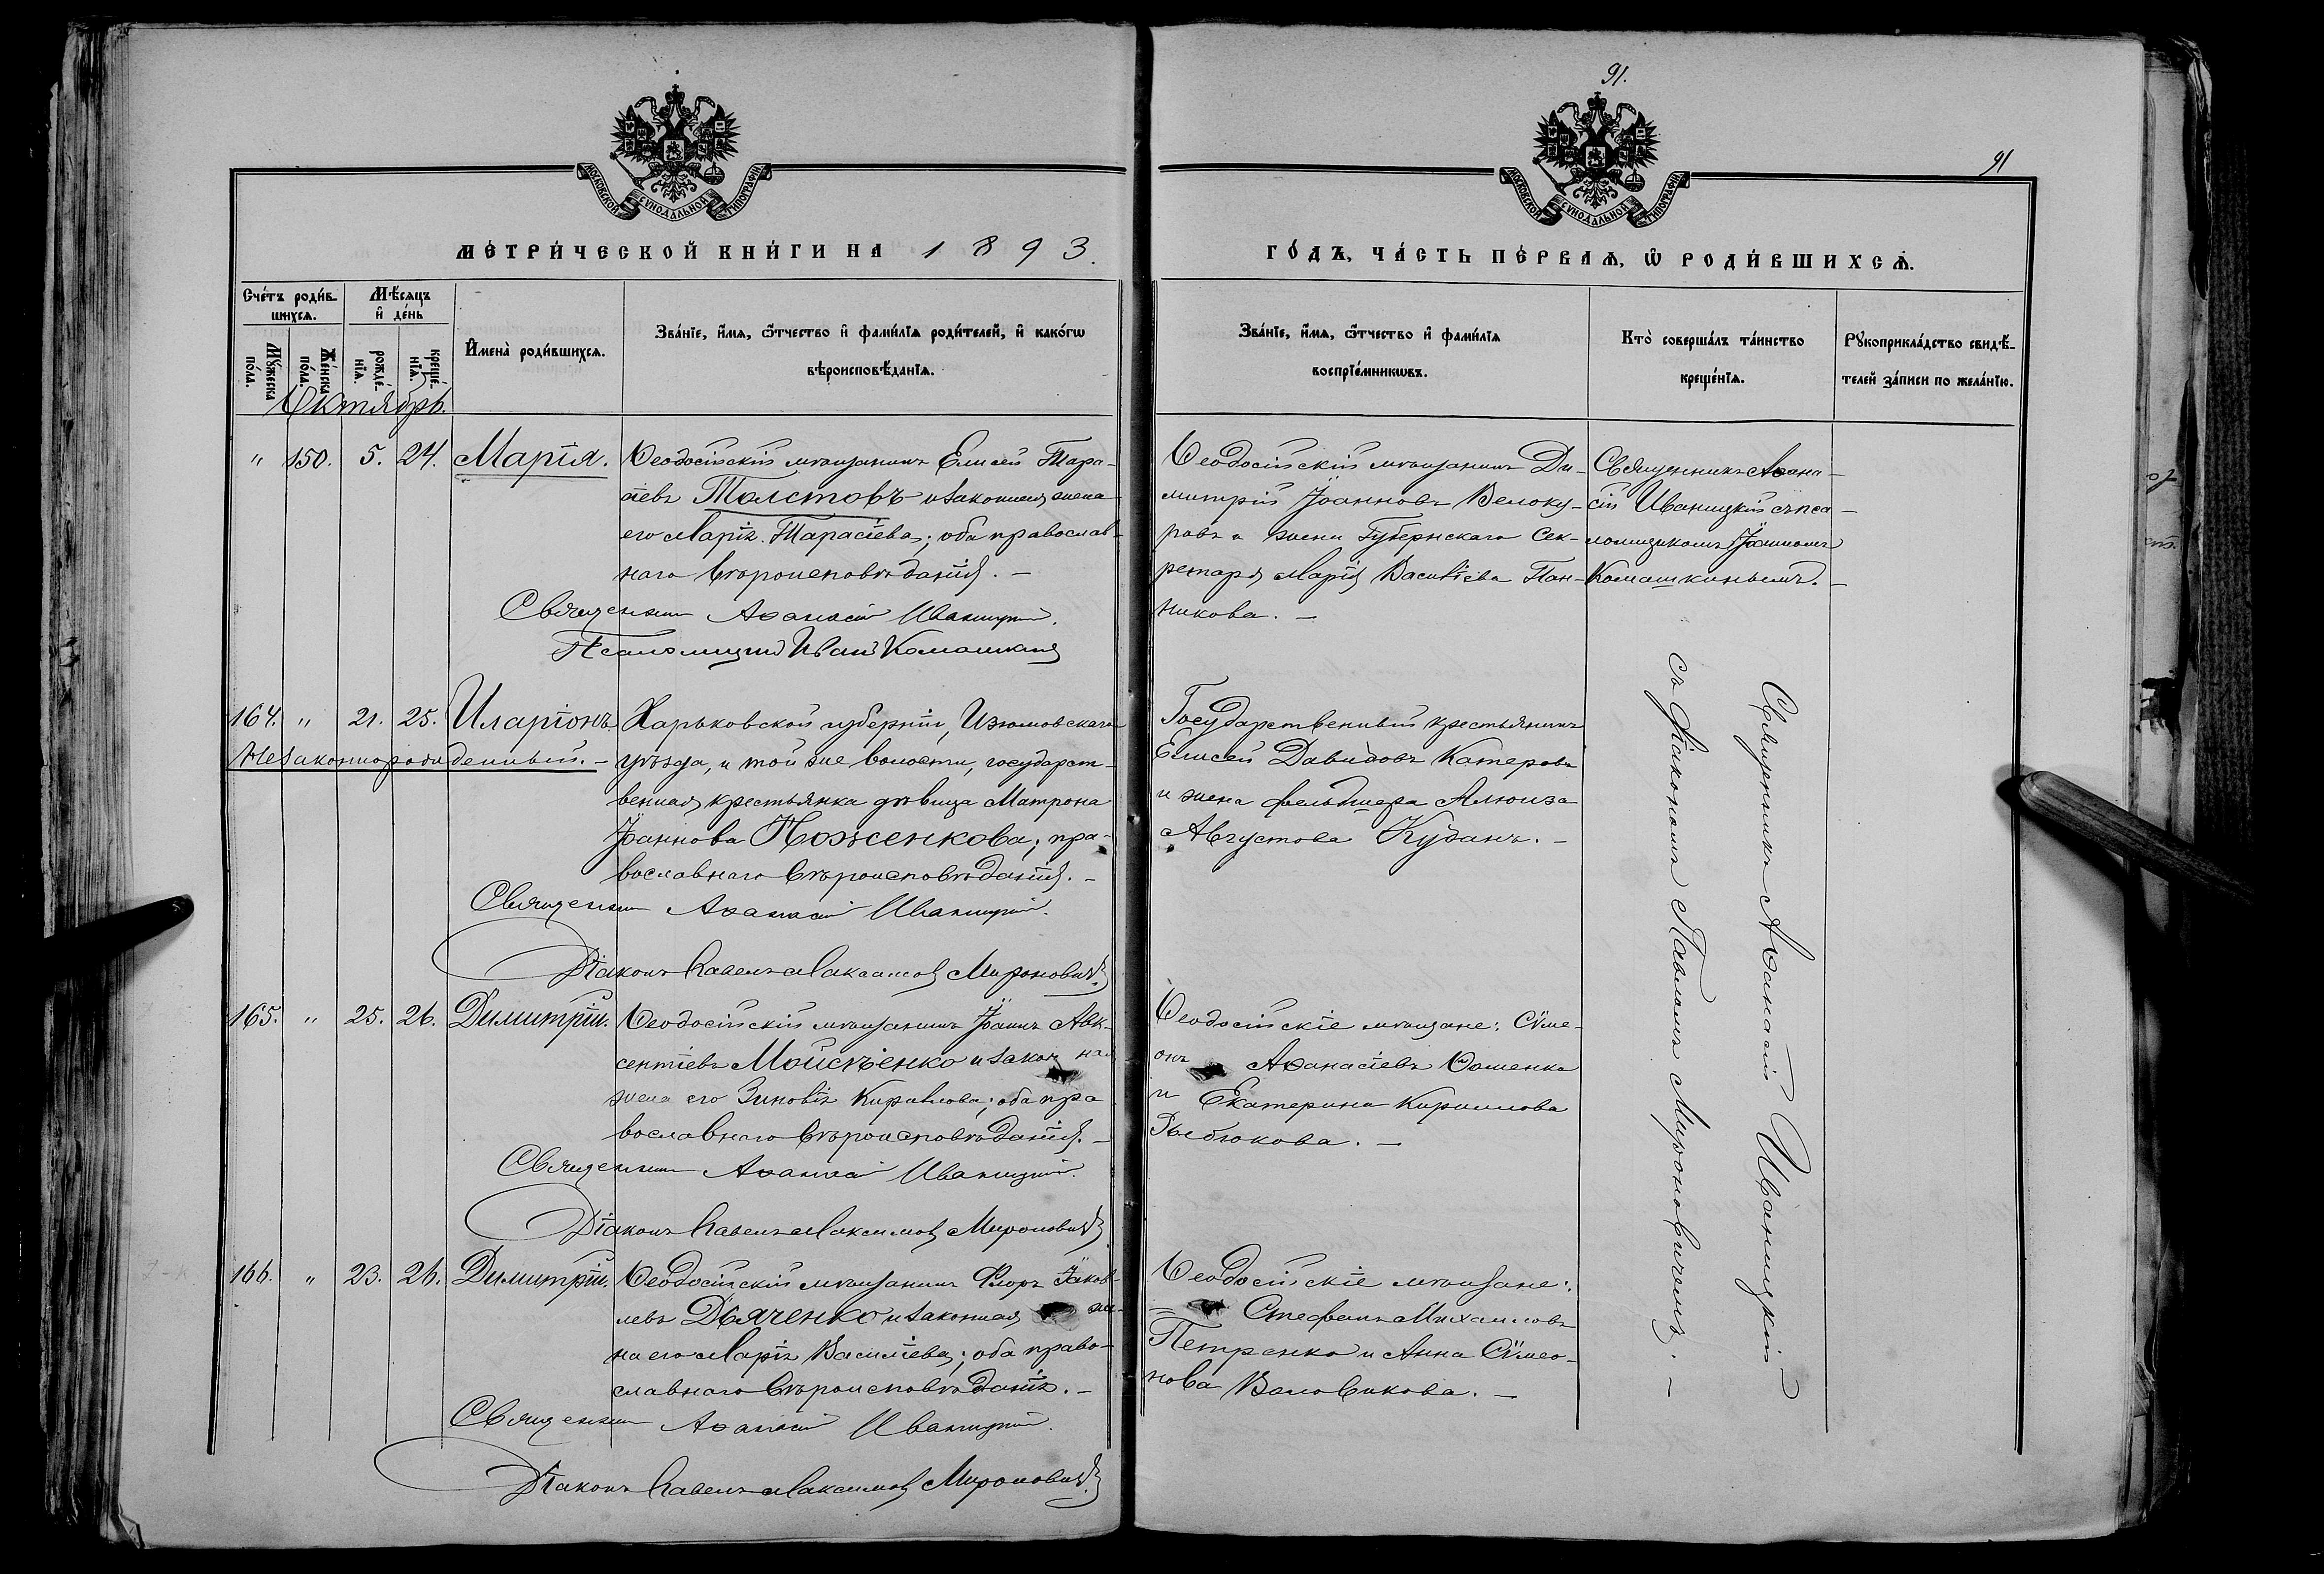 91.
91
МОСКОВСКОЙ СУНОДАЛЬНОЙ ТИПОГРАФІИ
МОСКОВСКОЙ СУНОДАЛЬНОЙ ТИПОГРАФІИ
МЕТРИ́ЧЕСКОЙ КНИ́ГИ НА 1893.
ГО́ДЪ, ЧА́СТЬ ПЕ́РВАѦ, Ѡ҆ РОДИ́ВШИХСѦ.
Сче́тъ роди́в-
шихсѧ.
Мѣ́сѧцъ
и҆ де́нь
Мꙋ́жеска
по́ла.
Же́нска
по́ла.
рожде́-
нїѧ.
креще́-
нїѧ.
И҆мена̀ роди́вшихсѧ.
Зва́нїе, и҆́мѧ, ѻ҆́тчество и҆ фами́лїѧ роди́телей, и҆ како́гѡ
вѣроисповѣ́данїѧ.
Зва́нїе, и҆́мѧ, ѻ҆́тчество и҆ фами́лїѧ
воспрїе́мникѡвъ.
Кто̀ соверша́лъ та́инство
креще́нїѧ.
Рꙋкоприкла́дство свидѣ́-
телей за́писи по жела́нїю.
Октябрь.
" 150. 5. 24. Марія.
Ѳеодосійскій мѣщанинъ Елисей Тара-
сіевъ Толстовъ и законная жена
его Марія Тарасіева; оба православ-
наго вѣроисповѣданія. —
Священникъ Аѳанасій Иваницкій.
Псаломщикъ Иванъ Комашкинъ
Ѳеодосійскій мѣщанинъ Ди-
митрій Іоанновъ Белоку-
ровъ и жена Губернскаго Сек-
ретаря Марія Василіева Пан-
никова. —
Священникъ Аѳана-
сій Иваницкій съ пса-
ломщикомъ Іоанномъ
Комашкинымъ. —
164. " 21. 25. Иларіонъ.
Незаконнорожденный. —
Харьковской губерніи, Изюмовскаго
уѣзда, и той же волости, государст-
венная крестьянка дѣвица Матрона
Іоаннова Ноженкова; пра-
вославнаго вѣроисповѣданія. —
Священникъ Аѳанасій Иваницкій.
Діаконъ Павелъ Максимовъ Мироновичъ.
Государственный крестьянинъ
Елисей Давидовъ Катеровъ
и жена фельдшера Алюиза
Августова Куханъ. —
Священникъ Аѳанасій Иваницкій
съ Діакономъ Павломъ Мироновичемъ. —
165. " 25. 26. Димитрій.
Ѳеодосійскій мѣщанинъ Іоаннъ Авк-
сентіевъ Мойсѣенко и законная
жена его Зиновія Кириллова; оба пра-
вославнаго вѣроисповѣданія. —
Священникъ Аѳанасій Иваницкій.
Діаконъ Павелъ Максимовъ Мироновичъ
Ѳеодосійскіе мѣщане: Сѵме-
онъ Аѳанасіевъ Ѳоменко
и Екатерина Кириллова
166. " 23. 26. Димитрій.
Ѳеодосійскій мѣщанинъ Флоръ Іаков-
левъ Дяченко и законная же-
на его Марія Василіева; оба право-
славнаго вѣроисповѣданія. —
Священникъ Аѳанасій Иваницкій.
Діаконъ Павелъ Максимовъ Мироновичъ
Ѳеодосійскіе мѣщане:
Стефанъ Михаиловъ
Петренко и Анна Сѵмео-
нова Воловикова. —